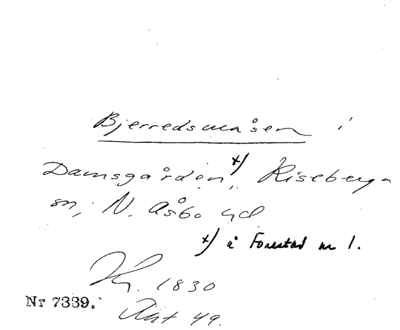 Bjerredsmåsen i
Damsgården, x) Riseberga
sn, N. Åsbo hd
x) i Forestad nr 1.
1830
Nr 7339.
Akt 49.